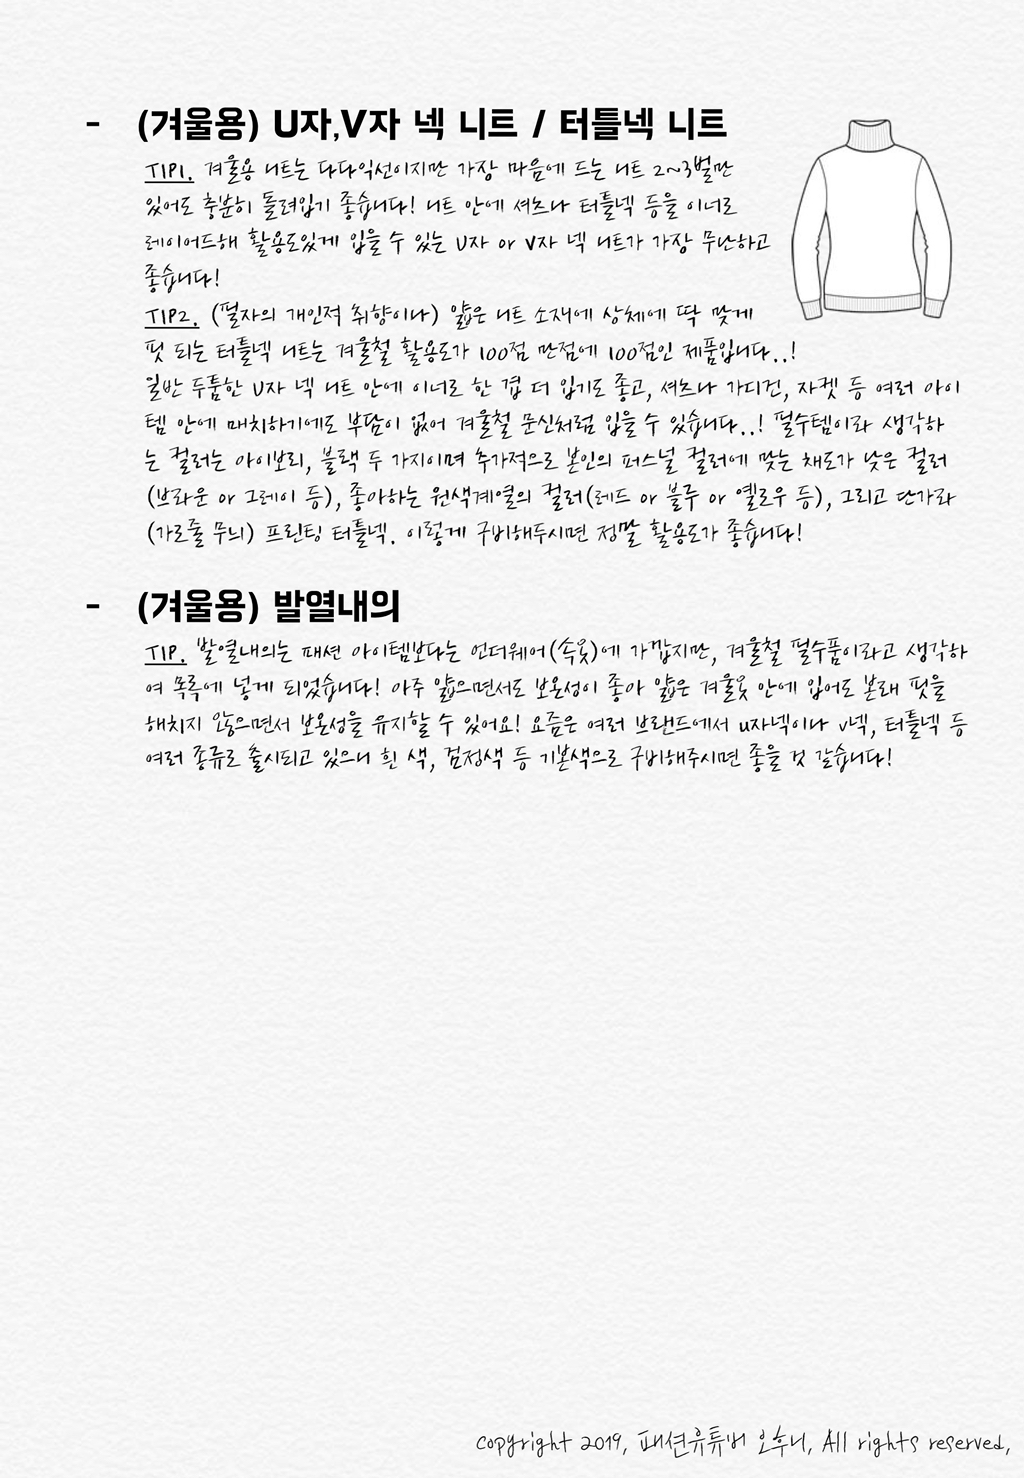 - (겨울용) U자,V자 넥 니트 / 터틀넥 니트
TIP1. 겨울용 니트는 다다익선이지만 가장 마음에 드는 니트 2~3벌만
있어도 충분히 돌려입기 좋습니다! 니트 안에 셔츠나 터틀넥 등을 이너로
레이어드해 활용도있게 입을 수 있는 U자 or V자 넥 니트가 가장 무난하고
좋습니다!
TIP2. (필자의 개인적 취향이나) 얇은 니트 소재에 상체에 딱 맞게
핏 되는 터틀넥 니트는 겨울철 활용도가 100점 만점에 100점인 제품입니다..!
일반 두툼한 U자 넥 니트 안에 이너로 한 겹 더 입기도 좋고, 셔츠나 가디건, 자켓 등 여러 아이
템 안에 매치하기에도 부담이 없어 겨울철 문신처럼 입을 수 있습니다..! 필수템이라 생각하
는 컬러는 아이보리, 블랙 두 가지이며 추가적으로 본인의 퍼스널 컬러에 맞는 채도가 낮은 컬러
(브라운 or 그레이 등), 좋아하는 원색계열의 컬러(레드 or 블루 or 옐로우 등), 그리고 단가라
(가로줄 무늬) 프린팅 터틀넥. 이렇게 구비해두시면 정말 활용도가 좋습니다!
- (겨울용) 발열내의
TIP. 발열내의는 패션 아이템보다는 언더웨어(속옷)에 가깝지만, 겨울철 필수품이라고 생각하
여 목록에 넣게 되었습니다! 아주 얇으면서도 보온성이 좋아 얇은 겨울옷 안에 입어도 본래 핏을
해치지 않으면서 보온성을 유지할 수 있어요! 요즘은 여러 브랜드에서 u자넥이나 v넥, 터틀넥 등
여러 종류로 출시되고 있으니 흰 색, 검정색 등 기본색으로 구비해주시면 좋을 것 같습니다!
copyright 2019, 패션유튜버 오후니, All rights reserved,